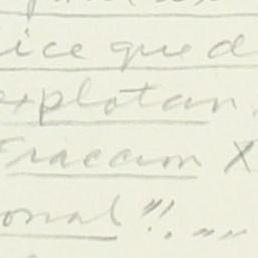 ice que d
explotan
Fraccion X
onal".